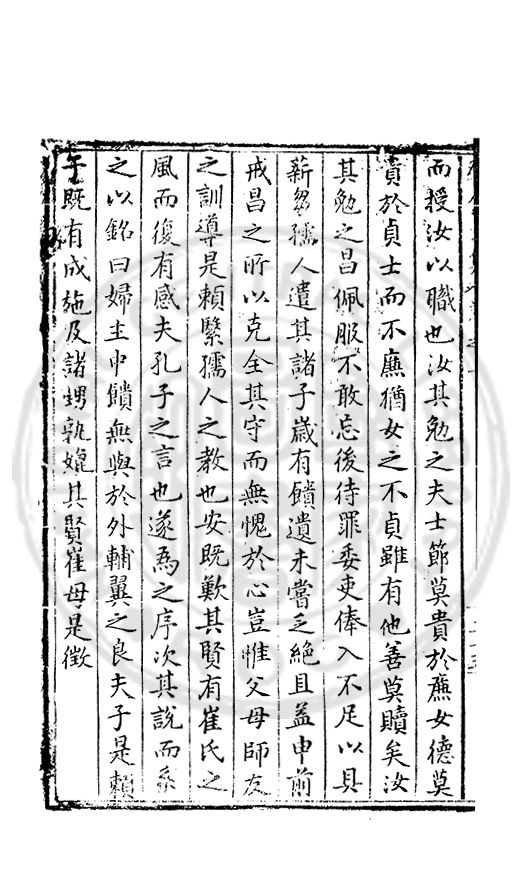 而授汝以職也汝其勉之夫士節莫貴於廉女德莫
貴於貞士而不廉猶女之不貞雖有他善莫贖矣汝
其勉之昌佩服不敢忘後待罪委吏俸入不足以具
薪芻孺人遣其諸子歲有饋遺未嘗乏絕且益申前
戒昌之所以克全其守而無愧於心豈惟父母師友
之訓導是賴繄孺人之教也安既歎其賢有崔氏之
風而復有感夫孔子之言也遂為之序次其說而系
之以銘曰婦主中饋無與於外輔翼之良夫子是賴
子既有成施及諸甥孰媲其賢崔母是徵